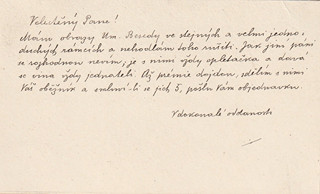 Velectěný Pane!
Mám obrazy Um. Besedy ve stejných a velmi jedno-
duchých rámcích a nehodlám toho rušiti. Jak jim páni
se rozhodnou nevím, je s nimi vždy opletačka a dává
se vina vždy jednateli. Až prémie dojdou, sdělím s nimi
Váš oběžník a -li se jich 5, pošlu Vám objednávku.
V dokonalé oddanosti